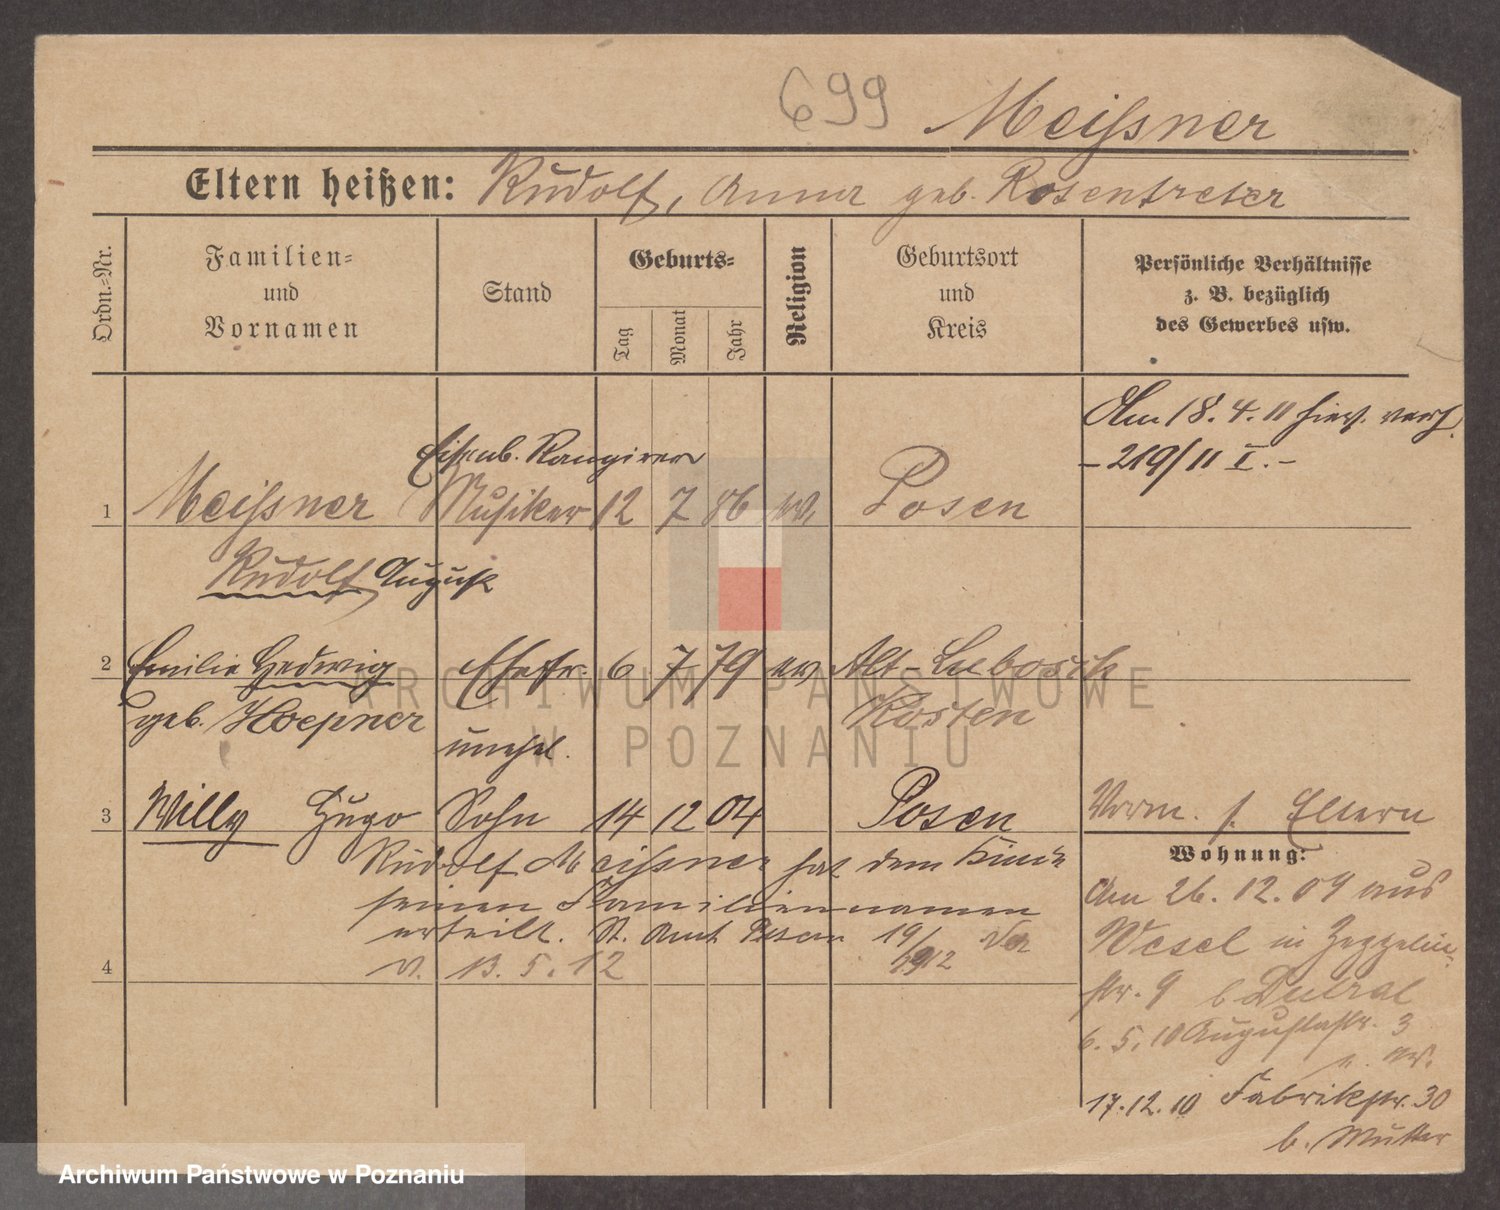 699 Meißner
Eltern heißen: Rudolf, Anna geb. Rosentreter
Ordn.-Nr.
Familien-
und
Vornamen
Stand
Geburts-
Tag
Monat
Jahr
Religion
Geburtsort
und
Kreis
Persönliche Verhältnisse
z. B. bezüglich
des Gewerbes usw.
Am 18.4.11 hier. verh.
- 219/11 I. -
Eisenb. Rangirer
1 Meißner Musiker 12 7 86 ev. Posen
Rudolf August
2 Emilie Hedwig Ehefr. 6 7 79 ev Alt-Lubosch
geb. Hoepner Kosten
unehel.
3 Willy Hugo Sohn 14 12 04 Posen
Vorm. s. Eltern
Rudolf Meissner hat dem Kinde
seinen Familiennamen
erteilt. St. Amt Posen 19/
4 v. 13. 5. 12 1912
Wohnung:
Am 26.12.09 aus
Wesel in Zeppelin-
str. 9 b
6.5.10 Augustastr. 3
17.12.10 Fabrikstr. 30
b. Mutter
ARCHIWUM PAŃSTWOWE
W POZNANIU
Archiwum Państwowe w Poznaniu